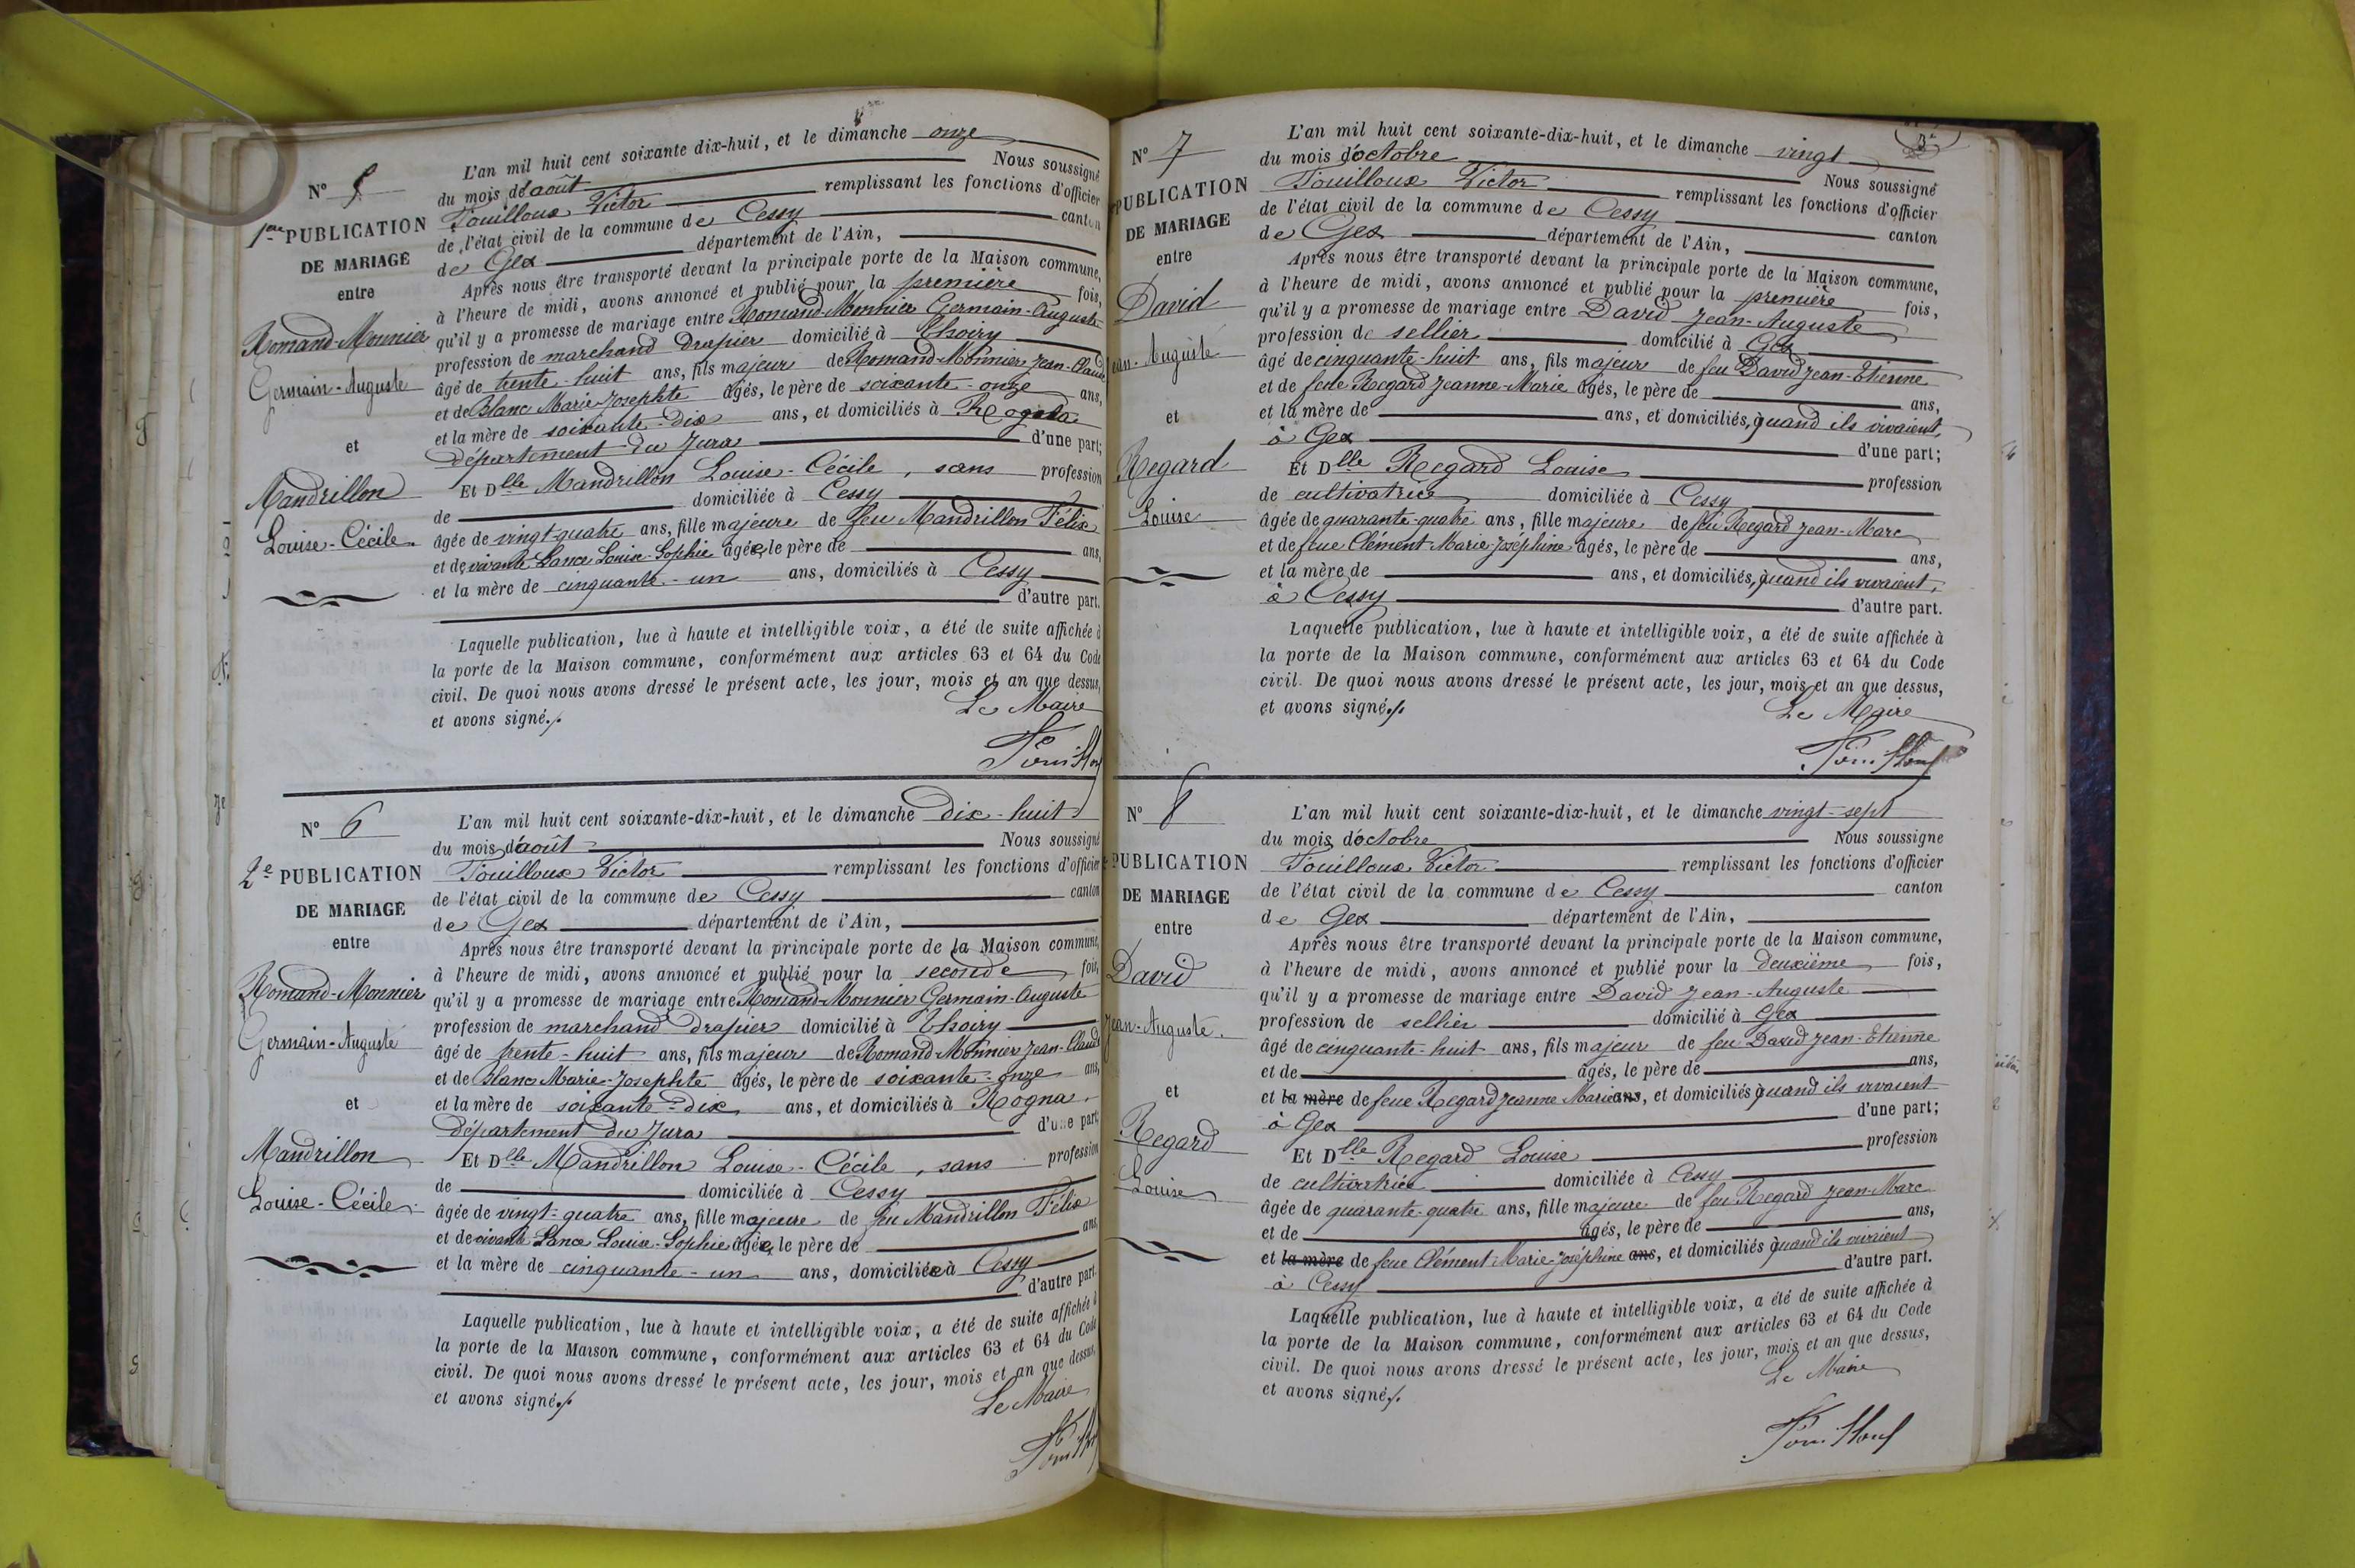 N° 5
1ère PUBLICATION
DE MARIAGE
entre
Romand-Monnier
Germain-Auguste
et
Mandrillon
Louise-Cécile.
L'an mil huit cent soixante dix-huit, et le dimanche onze
du mois d'août Nous soussigné
Fouilloux Victor remplissant les fonctions d'officier
de l'état civil de la commune de Cessy canton
de Gex département de l'Ain,
Après nous être transporté devant la principale porte de la Maison commune,
à l'heure de midi, avons annoncé et publié pour la première fois,
qu'il y a promesse de mariage entre Romand-Monnier Germain-Auguste
profession de marchand drapier domicilié à Thoiry
âgé de trente-huit ans, fils majeur de Romand-Monnier Jean-Claude
et de Blanc Marie-Josephte âgés, le père de soixante-onze ans,
et la mère de soixante-dix ans, et domiciliés à Rogna
département du Jura d'une part;
Et Dlle Mandrillon Louise-Cécile, sans profession
de domiciliée à Cessy
âgée de vingt-quatre ans, fille majeure de feu Mandrillon Félix
et de vivante Lance Louise-Sophie âgée, le père de ans,
et la mère de cinquante-un ans, domiciliés à Cessy
d'autre part.
Laquelle publication, lue à haute et intelligible voix, a été de suite affichée à
la porte de la Maison commune, conformément aux articles 63 et 64 du Code
civil. De quoi nous avons dressé le présent acte, les jour, mois et an que dessus,
et avons signé.
Le Maire
Fouilloux
N° 6
2e PUBLICATION
DE MARIAGE
entre
Romand-Monnier
Germain-Auguste
et
Mandrillon
Louise-Cécile.
L'an mil huit cent soixante-dix-huit, et le dimanche dix-huit
du mois d'août Nous soussigné
Fouilloux Victor remplissant les fonctions d'officier
de l'état civil de la commune de Cessy canton
de Gex département de l'Ain,
Après nous être transporté devant la principale porte de la Maison commune,
à l'heure de midi, avons annoncé et publié pour la seconde fois,
qu'il y a promesse de mariage entre Romand-Monnier Germain-Auguste
profession de marchand drapier domicilié à Thoiry
âgé de trente-huit ans, fils majeur de Romand-Monnier Jean-Claude
et de Blanc Marie-Josephte âgés, le père de soixante-onze ans,
et la mère de soixante-dix ans, et domiciliés à Rogna,
département du Jura d'une part;
Et Dlle Mandrillon Louise-Cécile, sans profession
de domiciliée à Cessy
âgée de vingt-quatre ans, fille majeure de feu Mandrillon Félix
et de vivante Lance Louise-Sophie âgée, le père de ans,
et la mère de cinquante-un ans, domiciliée à Cessy
d'autre part.
Laquelle publication, lue à haute et intelligible voix, a été de suite affichée à
la porte de la Maison commune, conformément aux articles 63 et 64 du Code
civil. De quoi nous avons dressé le présent acte, les jour, mois et an que dessus,
et avons signé.
Le Maire
Fouilloux
N° 7
PUBLICATION
DE MARIAGE
entre
David
Jean-Auguste
et
Regard
Louise
L'an mil huit cent soixante-dix-huit, et le dimanche vingt
du mois d'octobre Nous soussigné
Fouilloux Victor remplissant les fonctions d'officier
de l'état civil de la commune de Cessy canton
de Gex département de l'Ain,
Après nous être transporté devant la principale porte de la Maison commune,
à l'heure de midi, avons annoncé et publié pour la première fois,
qu'il y a promesse de mariage entre David Jean-Auguste
profession de sellier domicilié à Gex
âgé de cinquante-huit ans, fils majeur de feu David Jean-Etienne
et de feue Regard Jeanne-Marie âgés, le père de ans,
et la mère de ans, et domiciliés, quand ils vivaient,
à Gex d'une part;
Et Dlle Regard Louise profession
de cultivatrice domiciliée à Cessy
âgée de quarante-quatre ans, fille majeure de feu Regard Jean-Marc
et de feue Clément Marie Joséphine âgés, le père de ans,
et la mère de ans, et domiciliés, quand ils vivaient,
à Cessy d'autre part.
Laquelle publication, lue à haute et intelligible voix, a été de suite affichée à
la porte de la Maison commune, conformément aux articles 63 et 64 du Code
civil. De quoi nous avons dressé le présent acte, les jour, mois et an que dessus,
et avons signé.
Le Maire
Fouilloux
N° 8
PUBLICATION
DE MARIAGE
entre
David
Jean-Auguste.
et
Regard
Louise
L'an mil huit cent soixante-dix-huit, et le dimanche vingt-sept
du mois d'octobre Nous soussigné
Fouilloux Victor remplissant les fonctions d'officier
de l'état civil de la commune de Cessy canton
de Gex département de l'Ain,
Après nous être transporté devant la principale porte de la Maison commune,
à l'heure de midi, avons annoncé et publié pour la deuxième fois,
qu'il y a promesse de mariage entre David Jean-Auguste
profession de sellier domicilié à Gex
âgé de cinquante-huit ans, fils majeur de feu David Jean-Etienne
et de âgés, le père de ans,
et la mère de feue Regard Jeanne Marie ans, et domiciliés quand ils vivaient
à Gex d'une part;
Et Dlle Regard Louise profession
de cultivatrice domiciliée à Cessy
âgée de quarante-quatre ans, fille majeure de feu Regard Jean-Marc
et de âgés, le père de ans,
et la mère de feue Clément Marie-Joséphine ans, et domiciliés quand ils vivaient
à Cessy d'autre part.
Laquelle publication, lue à haute et intelligible voix, a été de suite affichée à
la porte de la Maison commune, conformément aux articles 63 et 64 du Code
civil. De quoi nous avons dressé le présent acte, les jour, mois et an que dessus,
et avons signé.
Le Maire
Fouilloux